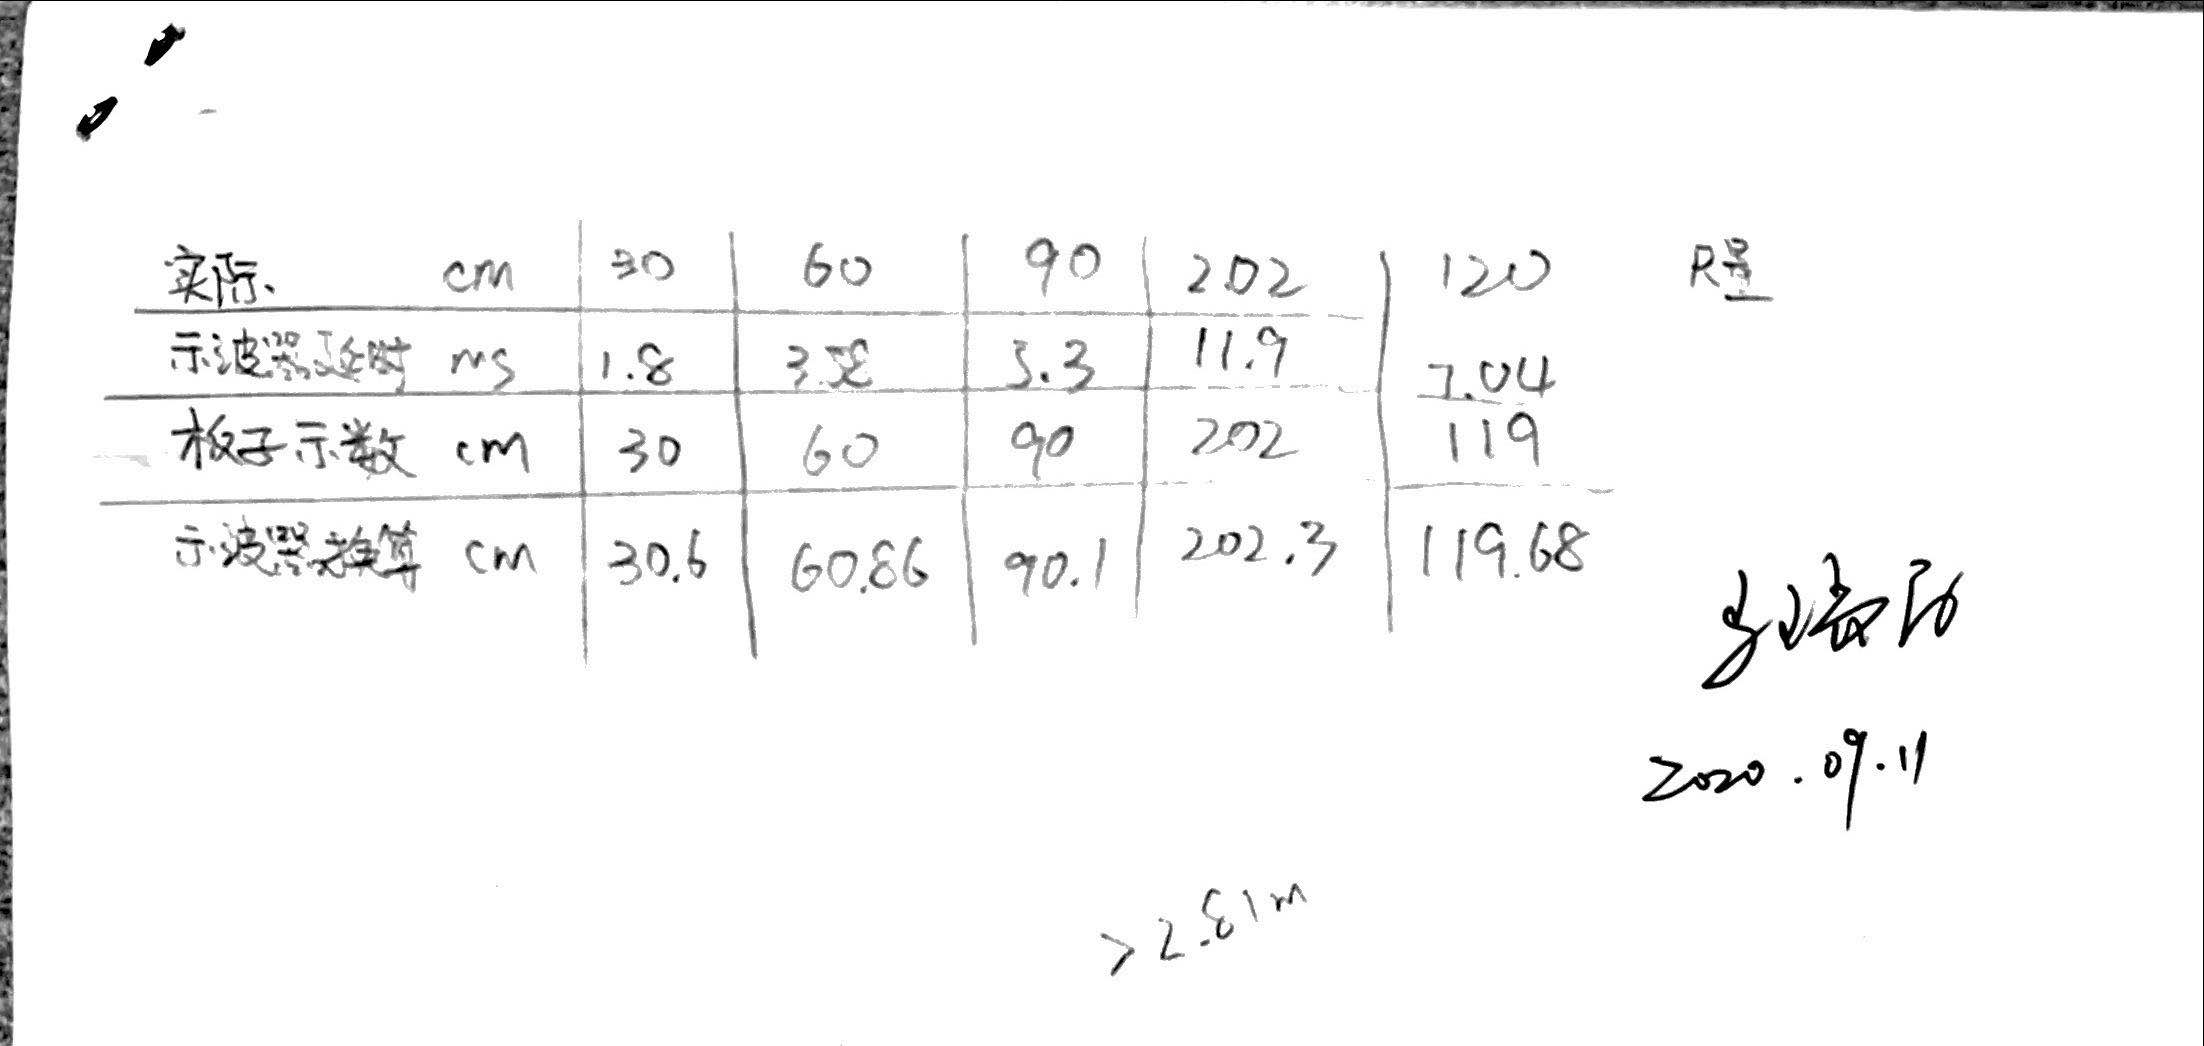 实际、 cm 30 60 90 202 120 R量
示波器延时 ms 1.8 3.58 5.3 11.9 7.04
板子示数 cm 30 60 90 202 119
示波器换算 cm 30.6 60.86 90.1 202.3 119.68
2020.09.11
>2.81m